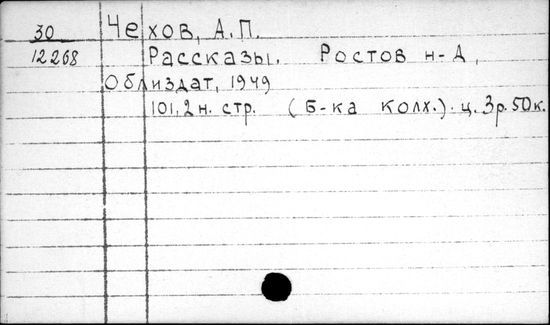 30 Чехов, А.П.
12268 Рассказы. Ростов н-Д,
Облиздат, 1949
101,2н. стр. (Б-ка колх.). ц. 3р.50к.